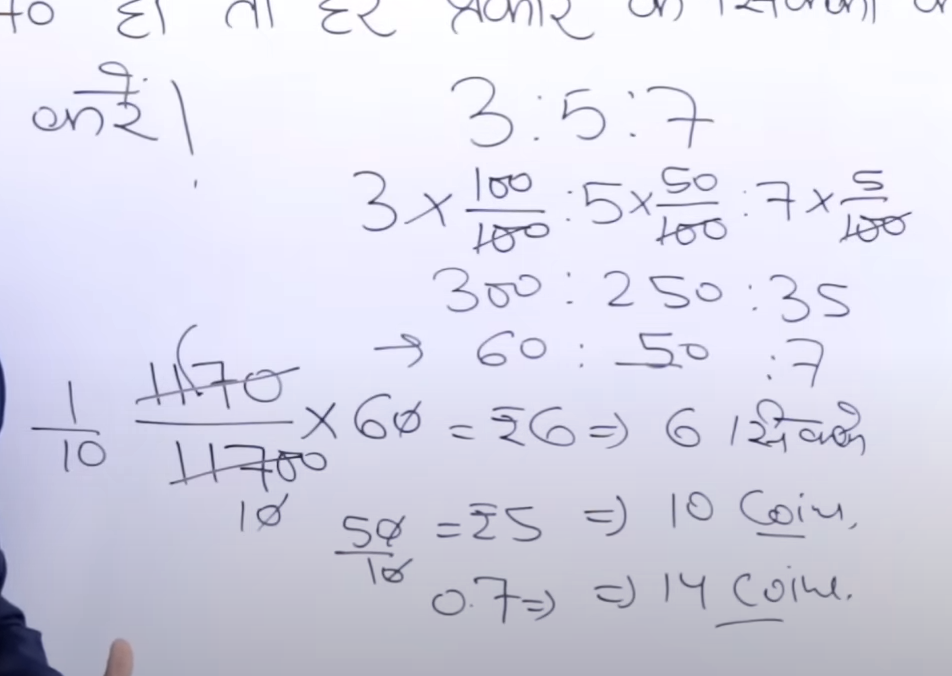 हो तो हर प्रकार के सिक्कों
करें।
3:5:7
3 × 100/100 : 5 × 50/100 : 7 × 5/100
300 : 250 : 35
→ 60 : 50 : 7
1/10 1170/11700 × 60 = ₹6 ⇒ 6 सिक्के
10
50/10 = ₹5 ⇒ 10 Coin.
0.7 ⇒ ⇒ 14 Coins.